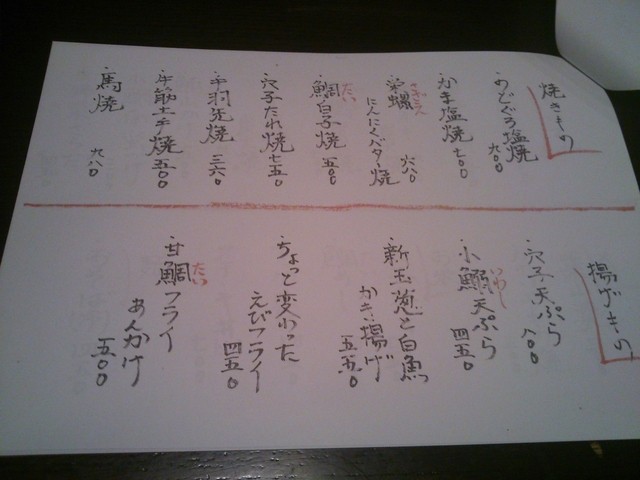 焼きもの
・のどぐろ塩焼 九〇〇
・かま塩焼 七〇〇
・栄螺 さざえ
にんにくバター焼 六八〇
・鯛白子焼 たい 五〇〇
・穴子たれ焼 七五〇
・手羽先焼 三六〇
・牛筋土手焼 五〇〇
・馬焼 九八〇
揚げもの
・穴子天ぷら 八〇〇
・小鰯天ぷら いわし 四五〇
・新玉葱と白魚
かき揚げ 五五〇
・ちょっと変わった
えびフライ 四五〇
・甘鯛フライ たい
あんかけ 五〇〇